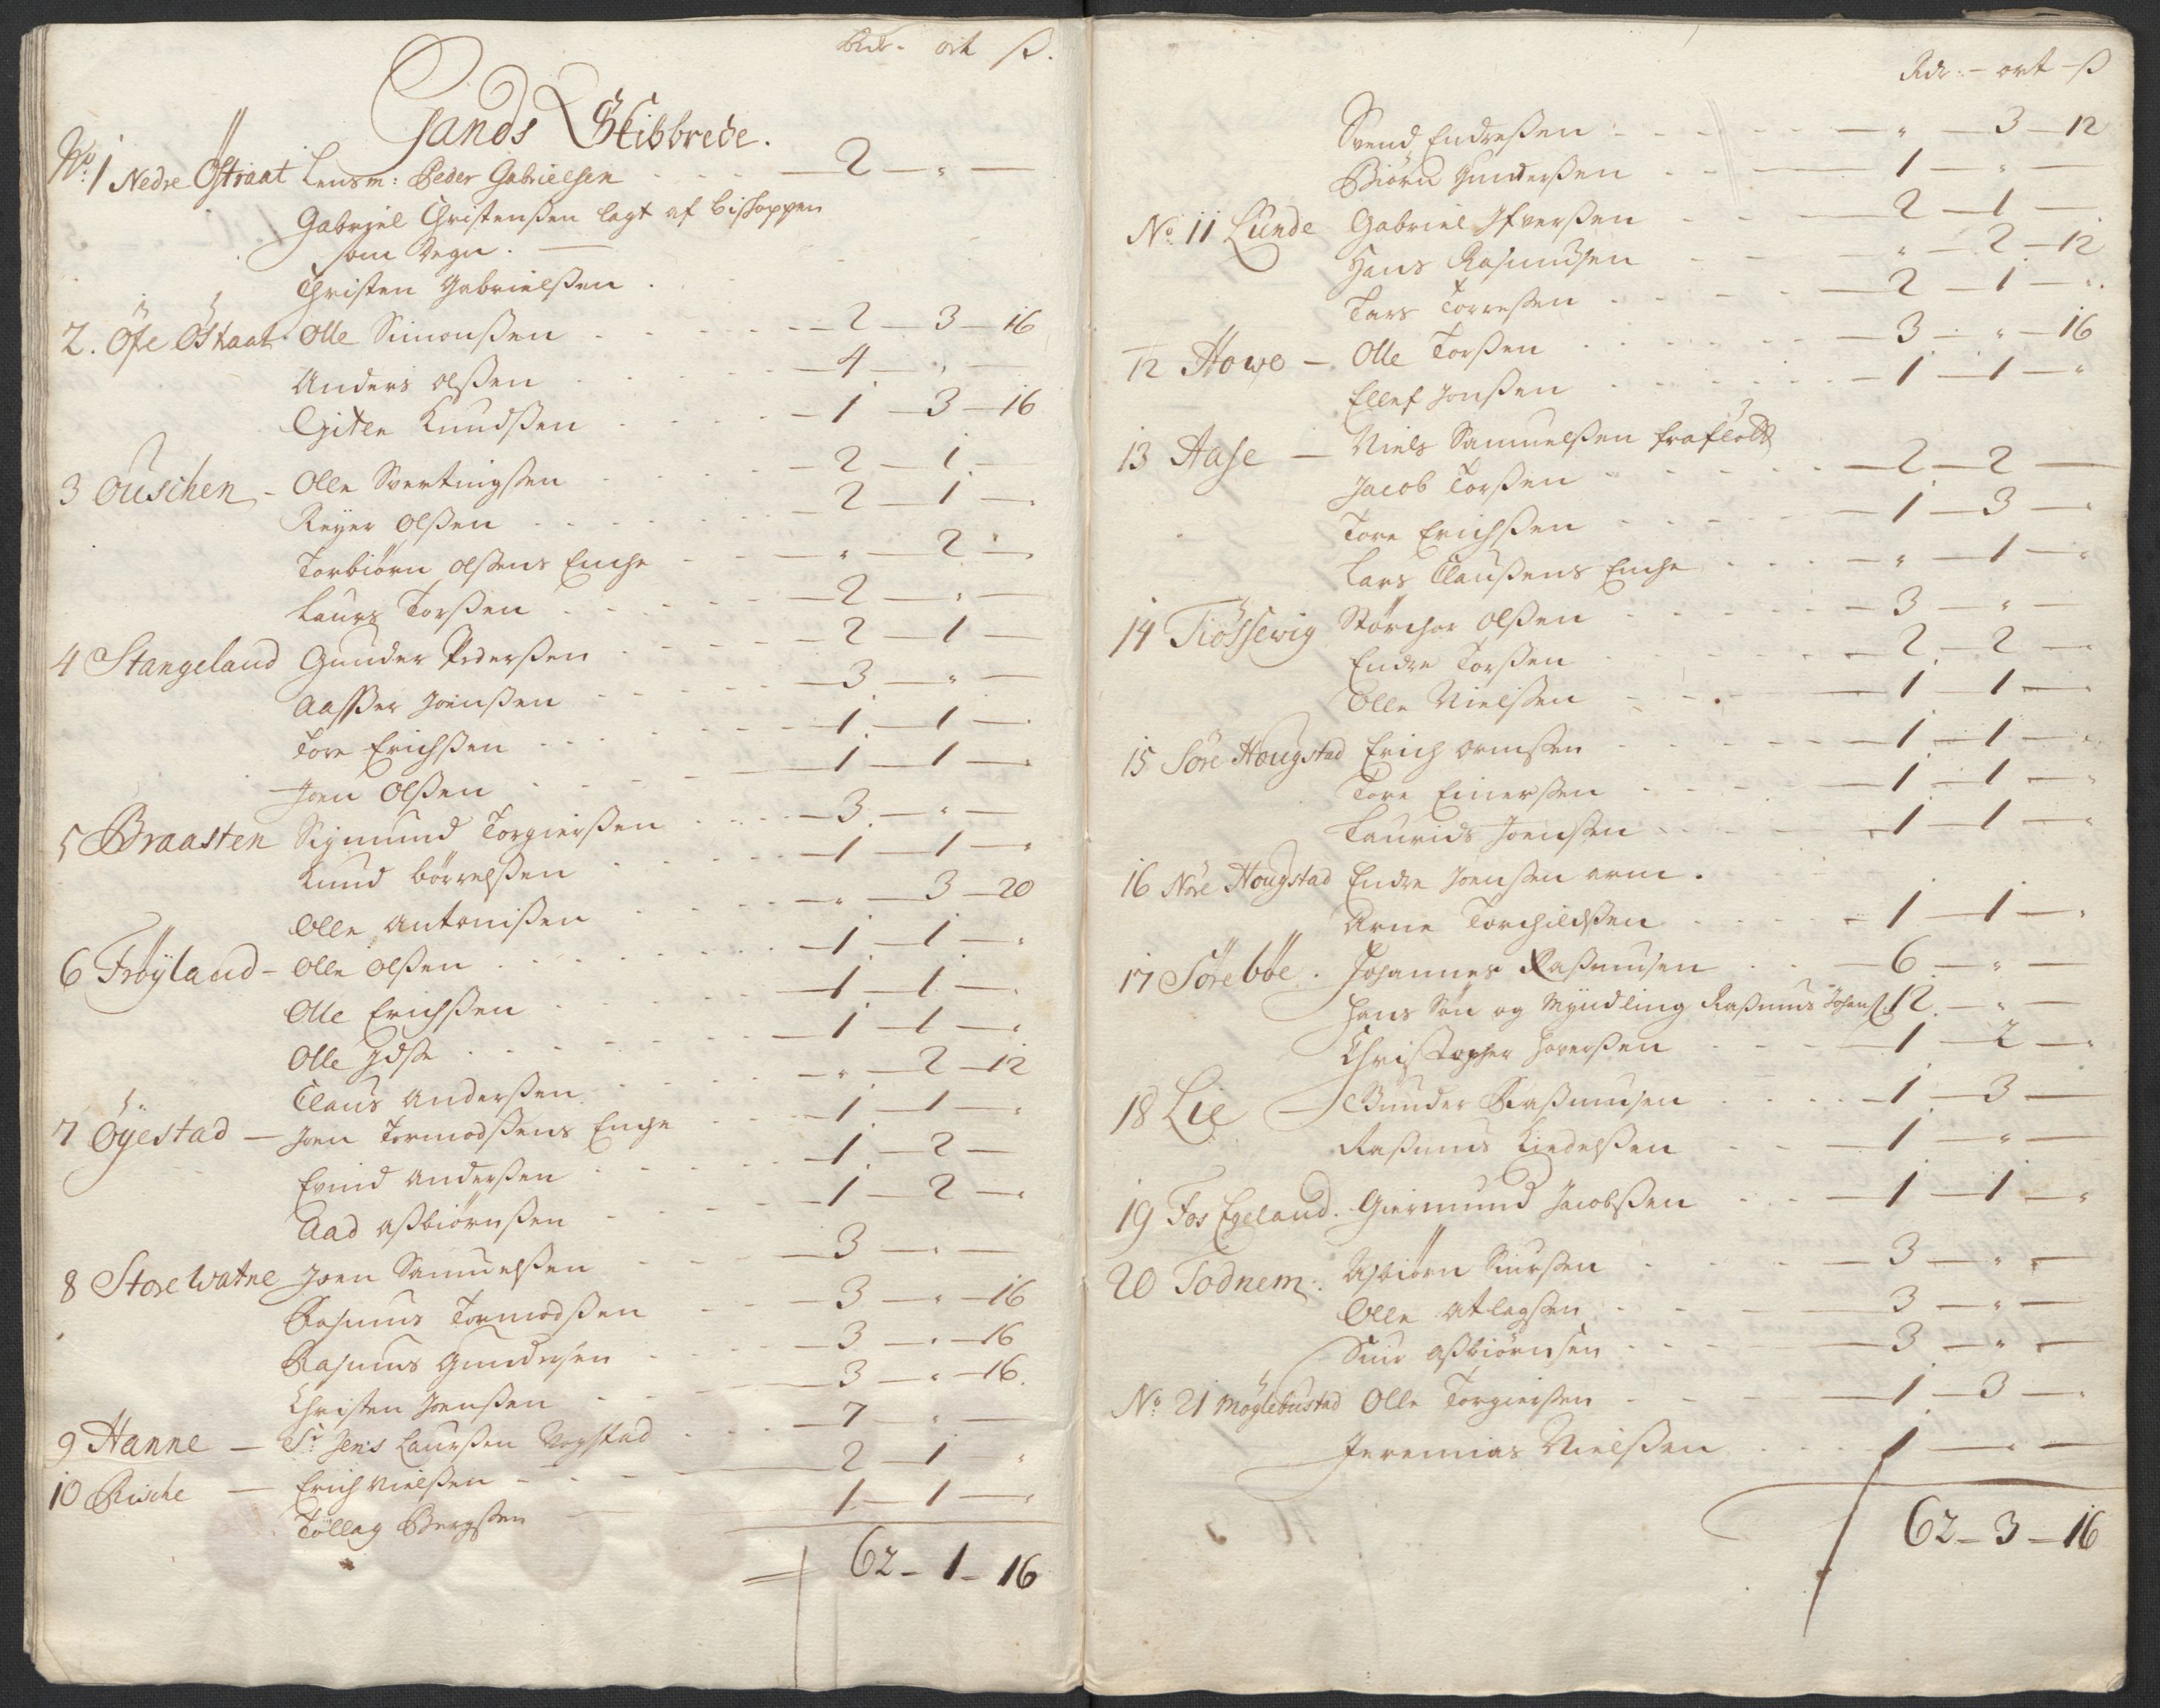 Rdr. ort ß.
Gands Skibbrede.
No. 1 Nedre Östraat Lensm: Peder Gabrielsen - 2 - " -
Gabriel Christensen lagt af bishoppen
som degn. -
Christen Gabrielßen.
2. Öfe Östraat Olle Simonßen - 2 - 3 - 16
Anders olßen - 4 - " -
Giten Knudßen - 1 - 3 - 16
3 Ouschen - Olle Svertingßen - 2 - 1 -
Reyer Olßen - 2 - 1 -
Torbiörn olßens Enche - " - 2 -
Laurs Torßen - 2 - " -
4 Stangeland Gunder Pederßen - 2 - 1 -
Aasßer Joenßen - 3 - " -
Tore Erichßen - 1 - 1 -
Joen Olßen - 1 - 1 -
5 Braasten Sigmund Torgierßen - 3 - " -
Knud börrelßen - 1 - 1 - "
Olle Antonißen - " - 3 - 20
6 Fröyland - Olle olßen - 1 - 1 - "
Olle Erichßen - 1 - 1 -
Olle Idße - 1 - 1 - "
Claus Anderßen - " - 2 - 12
7 Öyestad - Joen Tormodßens Enche - 1 - 1 - "
Evind Anderßen - 1 - 2 -
Aad aßbiörnßen - 1 - 2 - "
8 Store Watne Joen Samuelßen - 3 - " -
Rasmus Tormodßen - 3 - " - 16
Rasmus Gundersen - 3 - " - 16
Christen Joenßen - 3 - " - 16.
9 Hanne - Sr Jens Laurßen - 7 - " -
10 Rische - Erich Nielßen - 2 - 1 - "
Tollag Bergßen - 1 - 1 - "
62 - 1 - 16
Rdr: - ort - ß
Svend Endreßen - " - 3 - 12
Biörn Gunderßen - 1 - " -
No. 11 Lunde Gabriel Ifverßen - 2 - 1 -
Hans Rasmusen - " - 2 - 12
Lars Torreßen - 2 - 1 - "
12 Howe - Olle Torßen - 3 - " - 16
Ellef Jonßen - 1 - 1 - "
13 Aase - Niels Samuelßen
Jacob Torßen - 2 - 2 -
Tore Erichßen - 1 - 3 - "
Lars Claußens Enche - " - 1 - "
14 Tiössewig Störchor Olßen - 3 - " -
Endre Torßen - 2 - 2 -
Olle Nielßen - 1 - 1 - "
15 Söre Hougstad Erich ormßen - 1 - 1 - "
Tore Einerßen - 1 - 1 - "
Laurids Joensen - 1 - 1 - "
16 Nöre Hougstad Endre Joenßen arm.
Arne Torchildßen - 1 - 1 - "
17 Söreböe. Johannes Raßmusen - 6 - " -
Hans Sön og Myndling Raßmus Johans: 12 - " -
Christopher Joverßen - 1 - 2 - "
18 Lie - Gunder Raßmusen - 1 - 3 -
Raßmus Kiedelßen - 1 - " -
19 Fos Egeland. Giermund Jacobßen - 1 - 1 - "
20 Todnem. Asbiörn Siurßen - 3 - " -
Olle Atlagßen - 3 - " -
Siur Aßbiörnsen - 3 - " -
No. 21 Möglebustad Olle Torgierßen - 1 - 3 - "
Jeremias Nielßen - 1 - " -
62 - 3 - 16